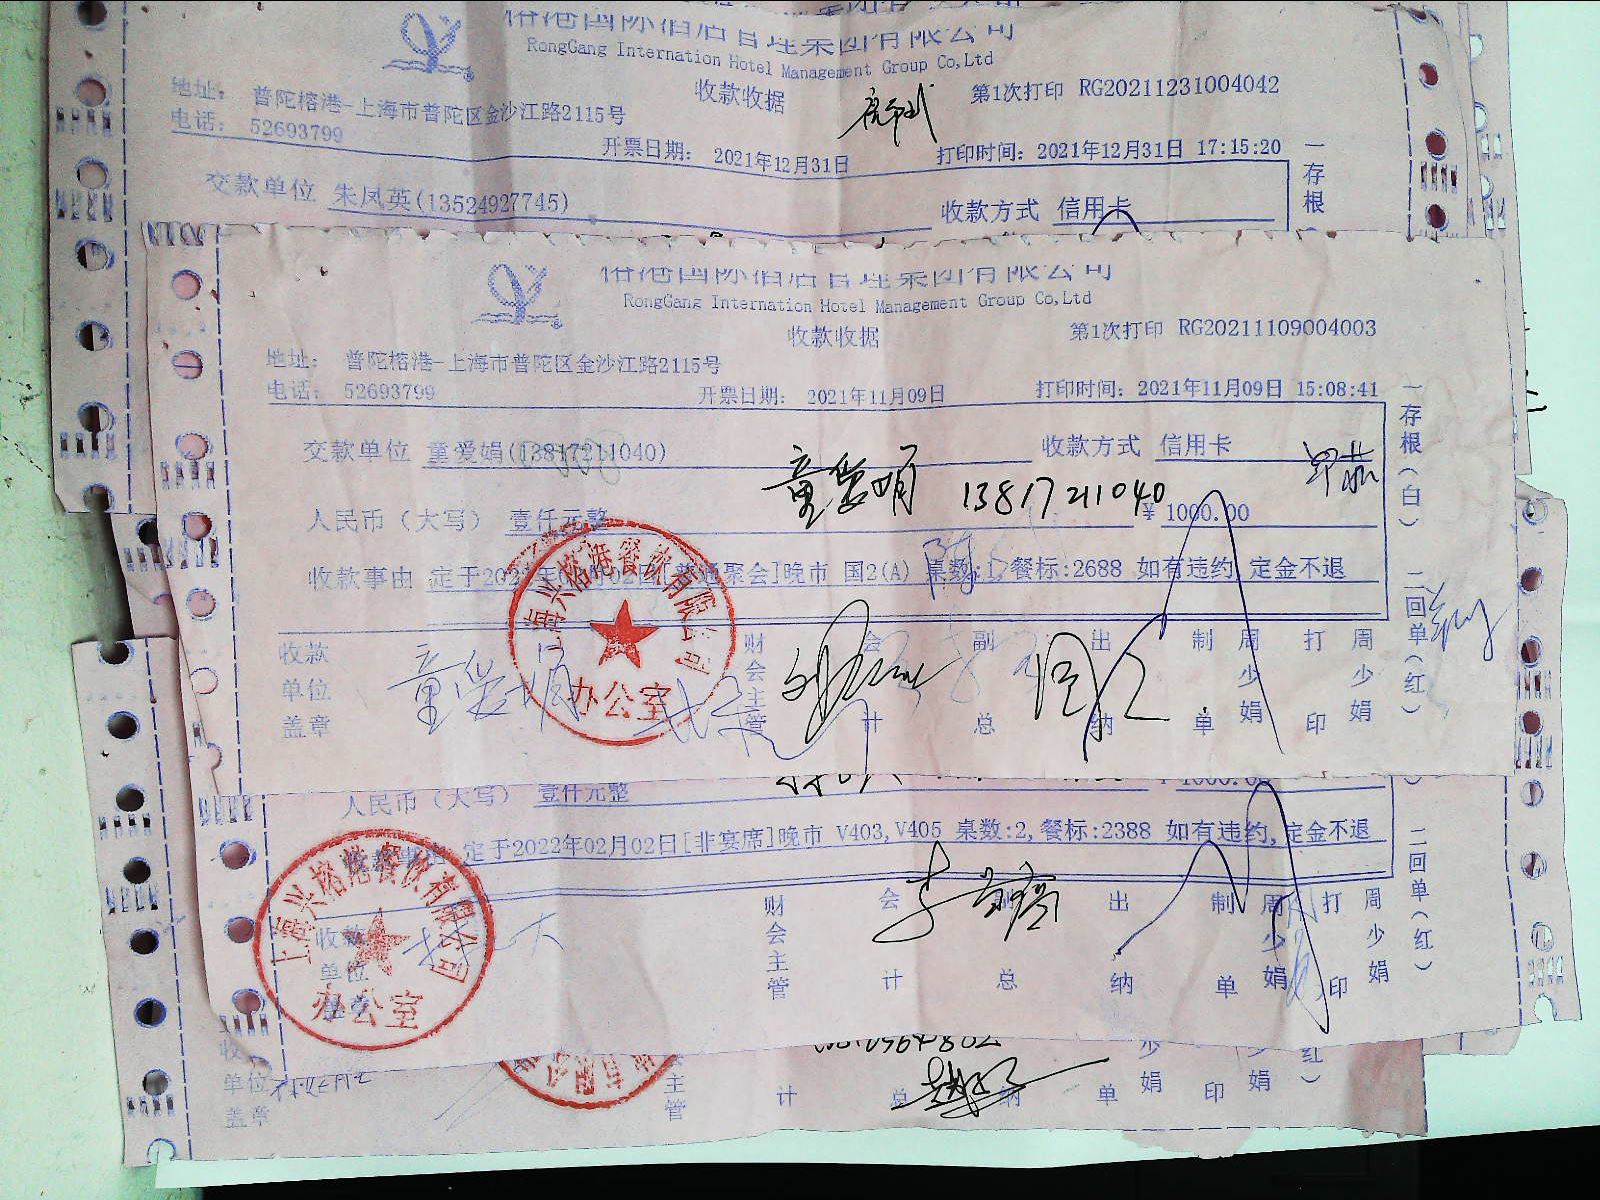 榕港国际酒店管理集团有限公司
RongGang Internation Hotel Management Group Co,Ltd
收款收据
第1次打印 RG20211231004042
地址： 普陀榕港-上海市普陀区金沙江路2115号
电话： 52693799
开票日期： 2021年12月31日
打印时间：2021年12月31日 17:15:20
交款单位 朱凤英(13524927745)
收款方式 信用卡
一存根
榕港国际酒店管理集团有限公司
RongGang Internation Hotel Management Group Co,Ltd
收款收据
第1次打印 RG20211109004003
地址： 普陀榕港-上海市普陀区金沙江路2115号
电话： 52693799
开票日期： 2021年11月09日
打印时间：2021年11月09日 15:08:41
交款单位 童爱娟(13817211040)
收款方式 信用卡
童爱娟 13817211040
人民币（大写） 壹仟元整
¥ 1000.00
收款事由 定于 02日[普通聚会]晚市 国2(A) 桌数:1,餐标:2688 如有违约,定金不退
一存根(白) 二回单(红)
收款单位盖章
童爱娟
上海兴榕港餐饮有限公司
办公室
财会主管
会计
副总
出纳
制单
周少娟
打印
周少娟
人民币（大写） 壹仟元整
¥ 1000.00
收款事由 定于2022年02月02日[非宴席]晚市 V403,V405 桌数:2,餐标:2388 如有违约,定金不退
二回单(红)
收款单位盖章
上海兴榕港餐饮有限公司
办公室
财会主管
会计
副总
出纳
制单
周少娟
打印
周少娟
收款单位盖章
会主管
计
总
纳
单
少娟
印
少娟
红)